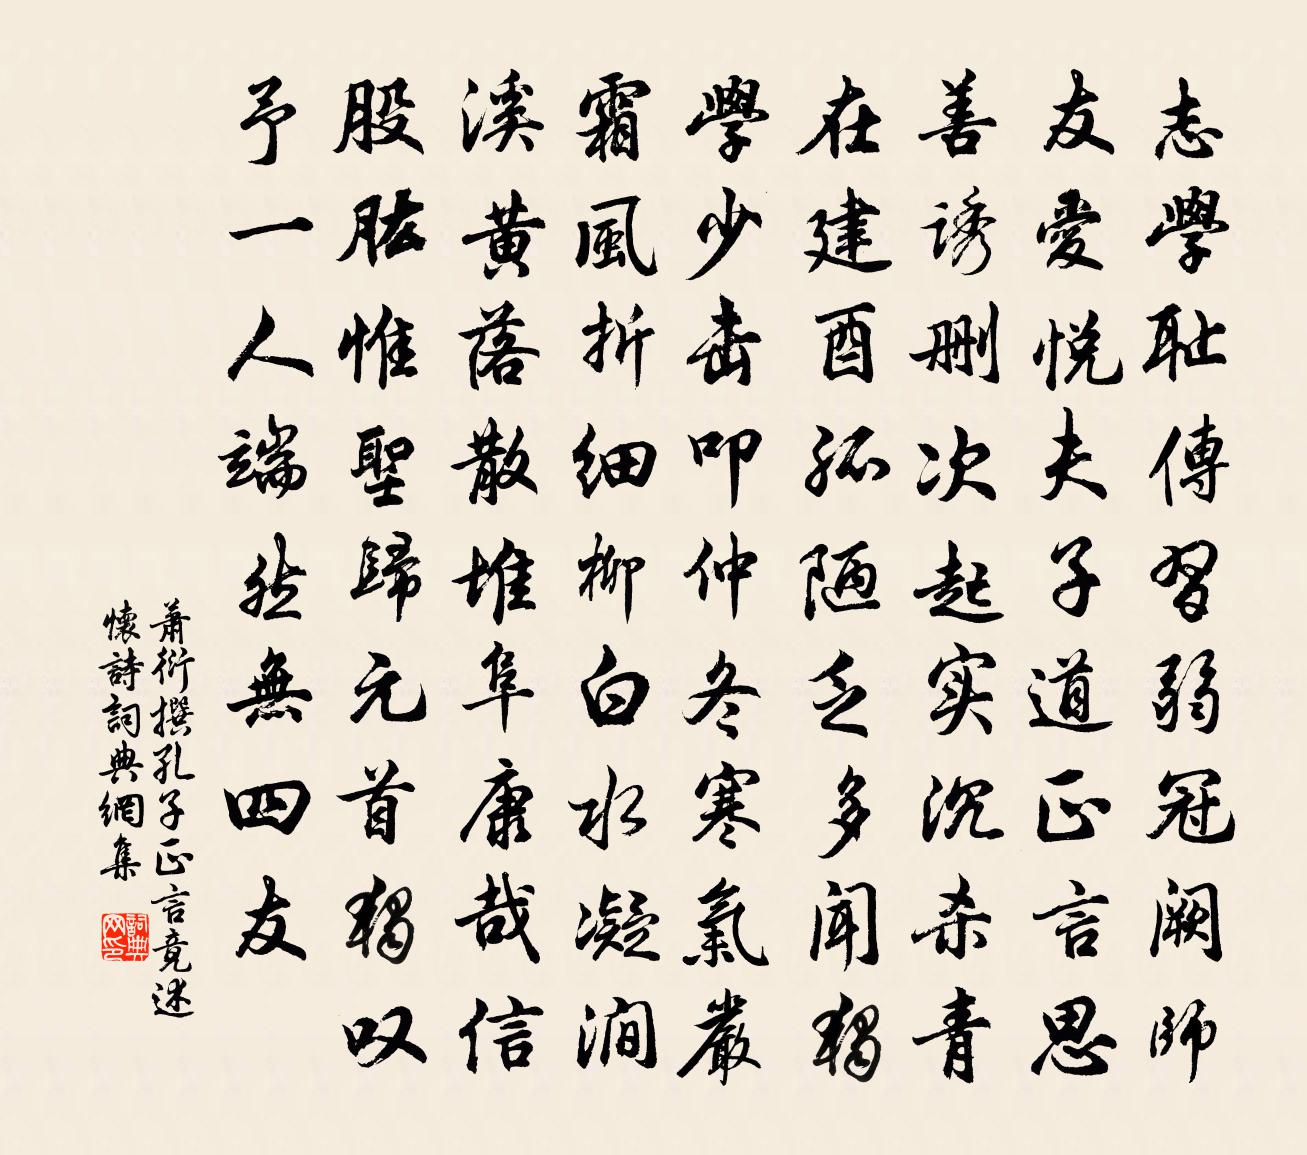 志學耻傳習弱冠闕師
友愛悅夫子道正言思
善誘刪次起实沉杀青
在建酉孤陋乏多闻獨
學少击叩仲冬寒氣嚴
霜風折细柳白水凝澗
溪黄落散堆阜康哉信
股肱惟聖歸元首獨叹
予一人端然無四友
萧衍撰孔子正言竟述
懷詩詞典網集
詞典